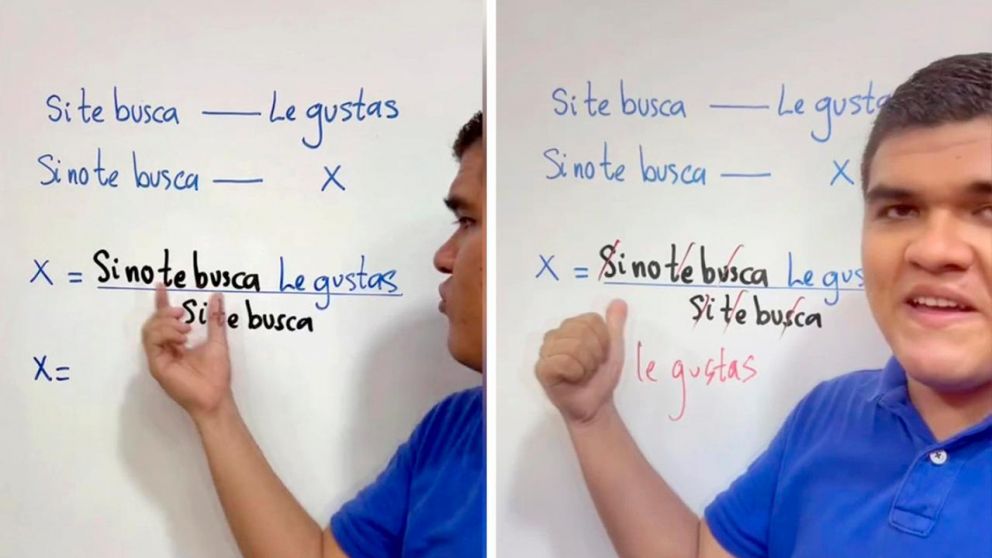 Si te busca — Le gustas
Si no te busca — X
X = Si no te busca Le gustas
Si te busca
X =
Si te busca — Le gusta
Si no te busca — X
X = Si no te busca Le gus
Si te busca
le gustas